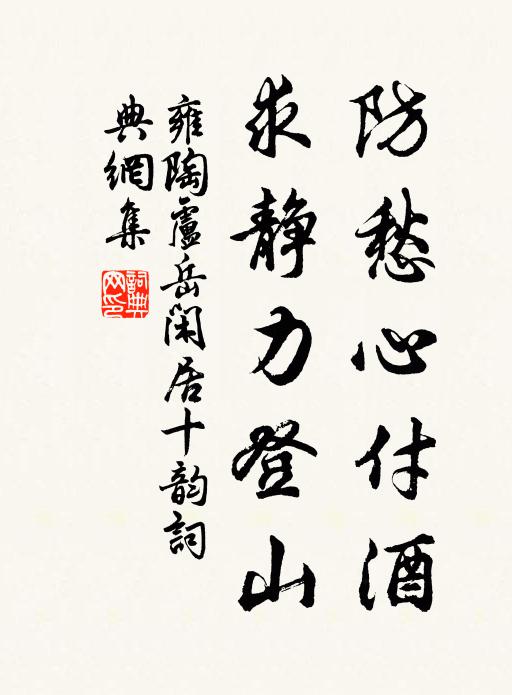 防愁心付酒
求静力登山
雍陶盧岳闲居十韵詞
典網集
詞典網印